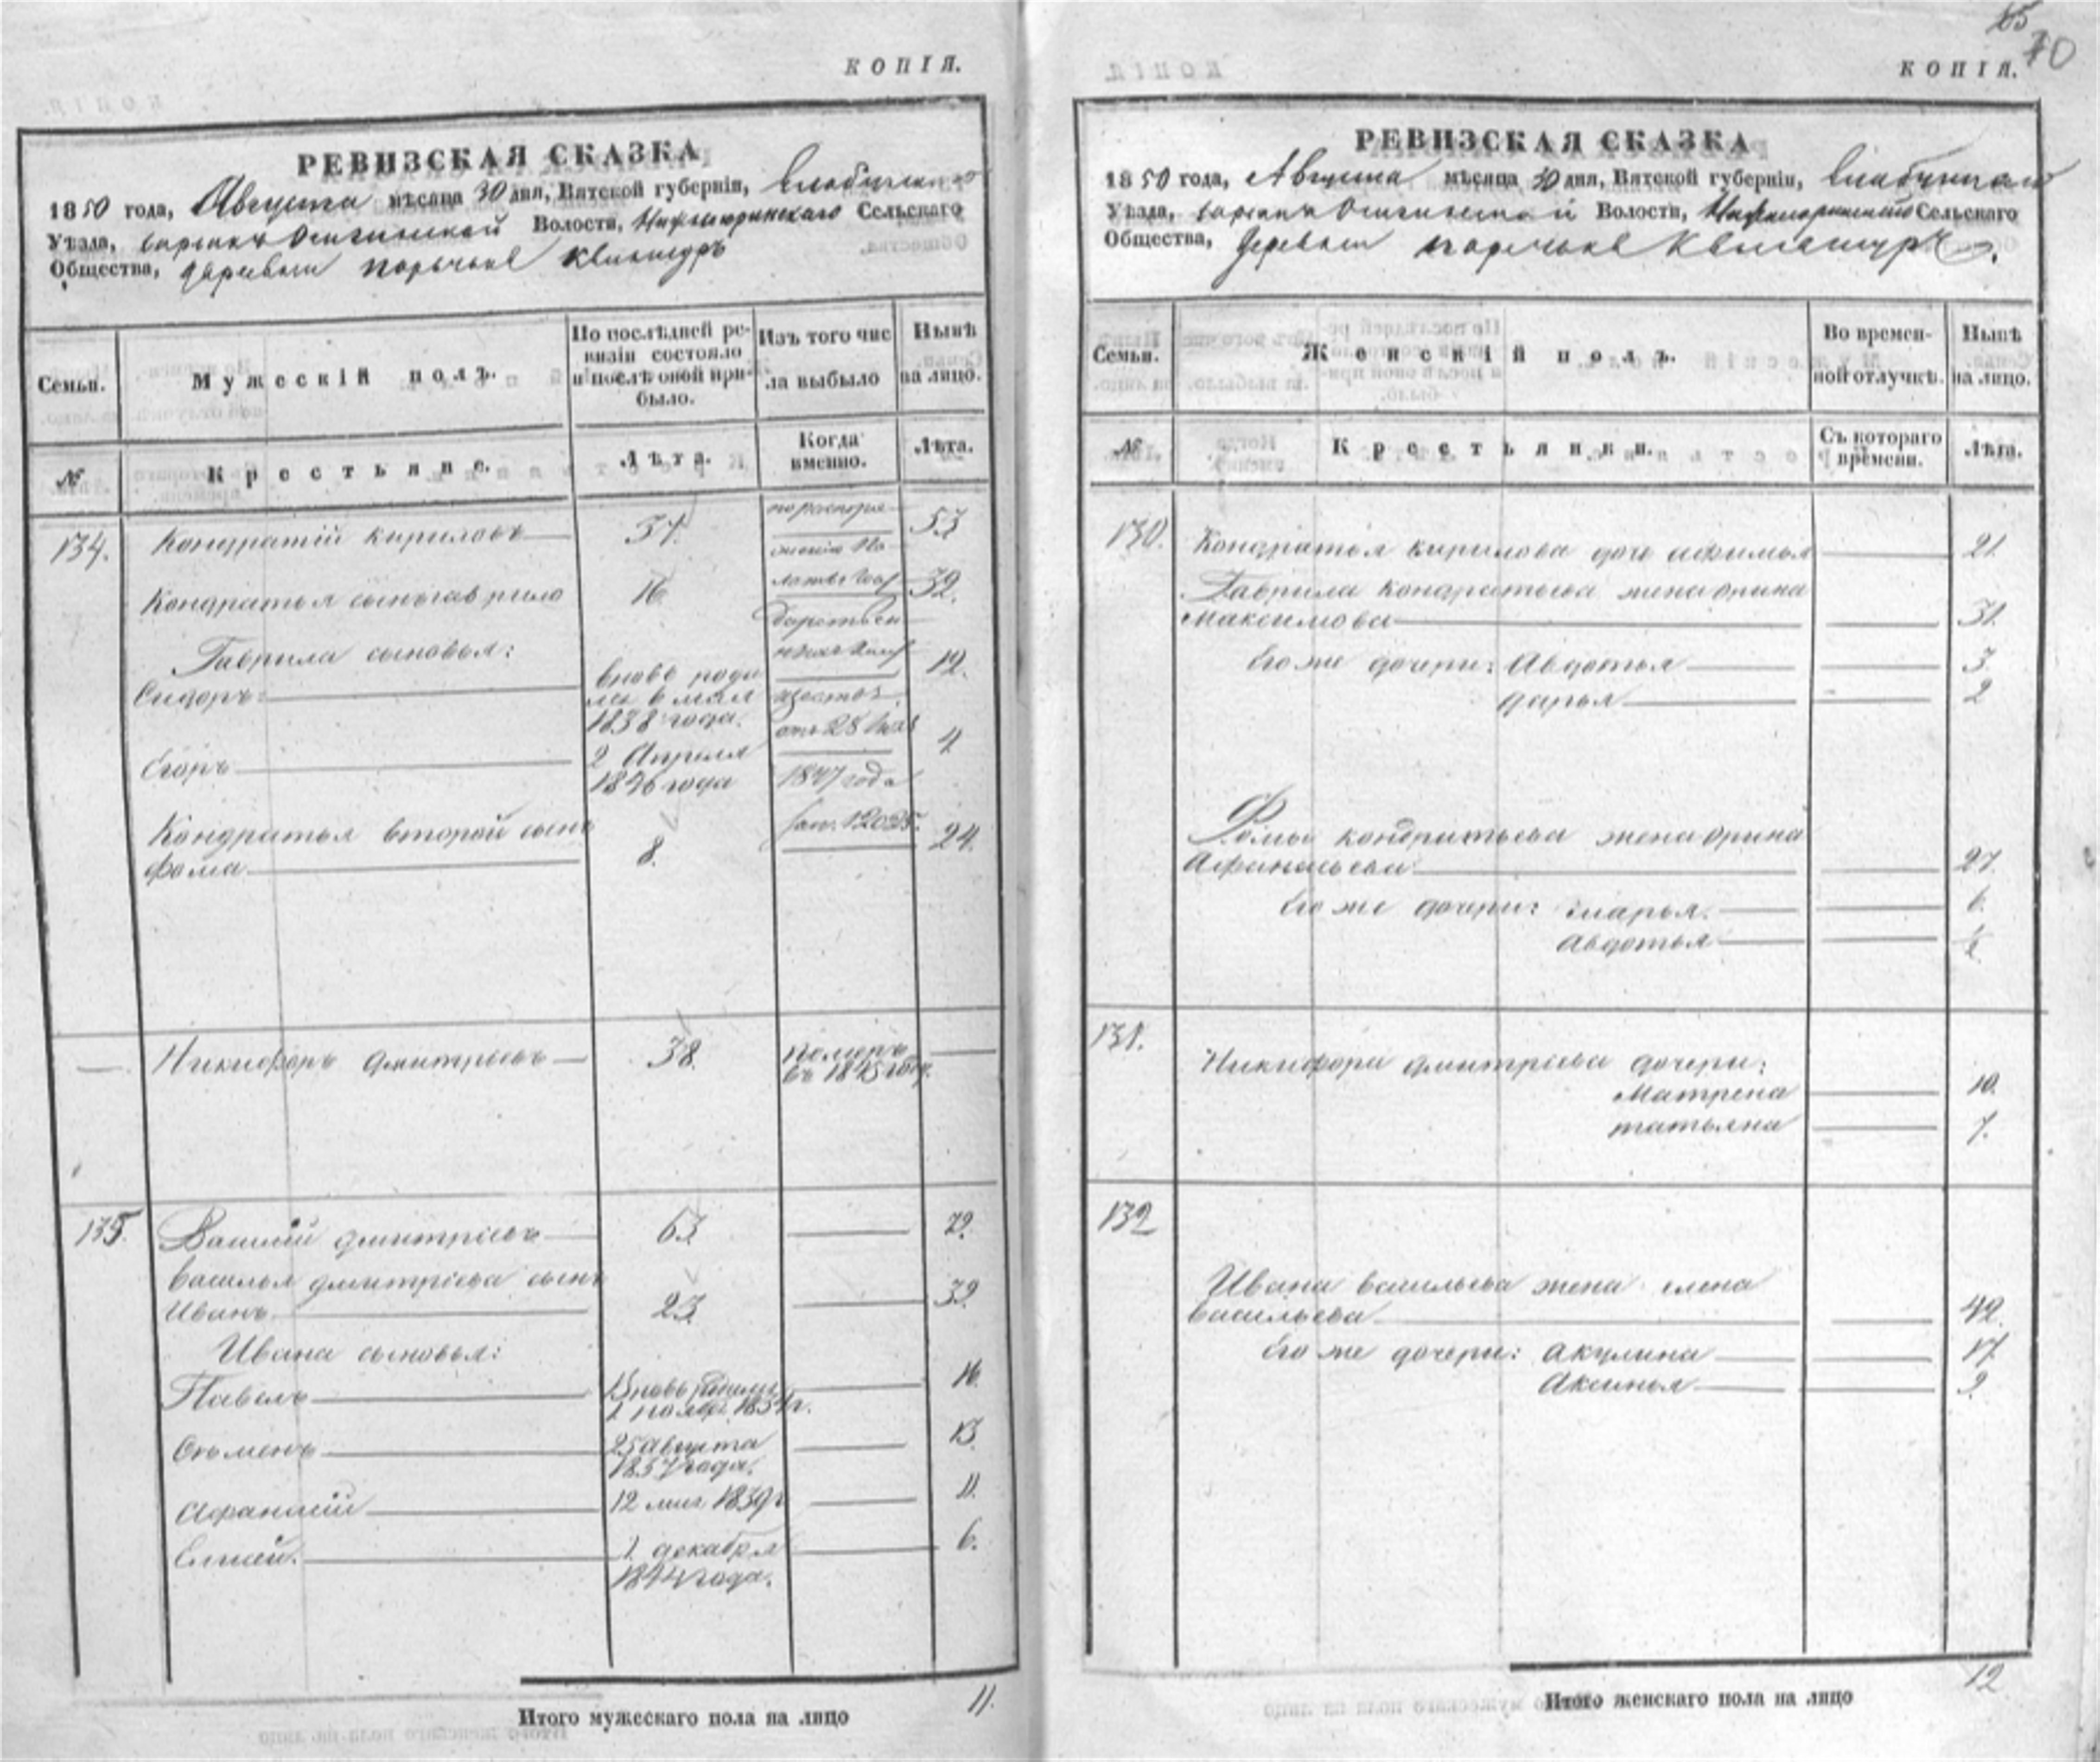 КОПІЯ.
РЕВИЗСКАЯ СКАЗКА
1850 года, Августа мѣсяца 30 дня, Вятской губерніи,
Уѣзда, Волости, Сельскаго
Общества, деревни
Семьи.
Мужескій полъ.
По послѣдней ре-
визіи состояло
и послѣ оной при-
было.
Изъ того чис
ла выбыло
Нынѣ
на лицо.
№
Крестьяне.
Лѣта.
Когда
именно.
Лѣта.
134.
Кондратій Кириловъ
37.
53
Кондратья сынъ Гаврило
16
32.
Гаврила сыновья:
Сидоръ:
вновь роди
1838 года.
12.
Егоръ
2 Апреля
1846 года
4
от 28
1847 года
Кондратья второй сынъ
Фома
8.
24.
Никифоръ Дмитріевъ
38.
померъ
въ 1845 году.
135.
Василій Дмитріевъ
63.
79.
Василья Дмитріева сынъ
Иванъ
23.
39.
Ивана сыновья:
Павелъ
1 ноября 1834 г.
16.
Семенъ
25 Августа
1837 года.
13.
Афанасій
12 1839 г
11.
Елисей.
1 декабря
1844 года.
6.
Итого мужескаго пола на лицо
11.
65
70
КОПІЯ.
РЕВИЗСКАЯ СКАЗКА
1850 года, Августа мѣсяца 30 дня, Вятской губерніи,
Уѣзда, Волости, Сельскаго
Общества, деревни
Семьи.
Женскій полъ.
Во времен-
ной отлучкѣ.
Нынѣ
на лицо.
№
Крестьянки.
Съ котораго
времени.
Лѣта.
130.
Кондратья Кирилова дочь Афимья
21.
Гаврила Кондратьева жена Орина
Максимова
31.
Его же дочери: Авдотья
3.
Дарья
2
Фомы Кондратьева жена Орина
Афанасьева
27.
Его же дочери: Марья.
6.
Авдотья
131.
Никифора Дмитріева дочери:
Матрена
10.
Татьяна
7.
132
Ивана Васильева жена Елена
Васильева
42.
Его же дочери: Акулина
17.
Аксинья
9.
Итого женскаго пола на лицо
12